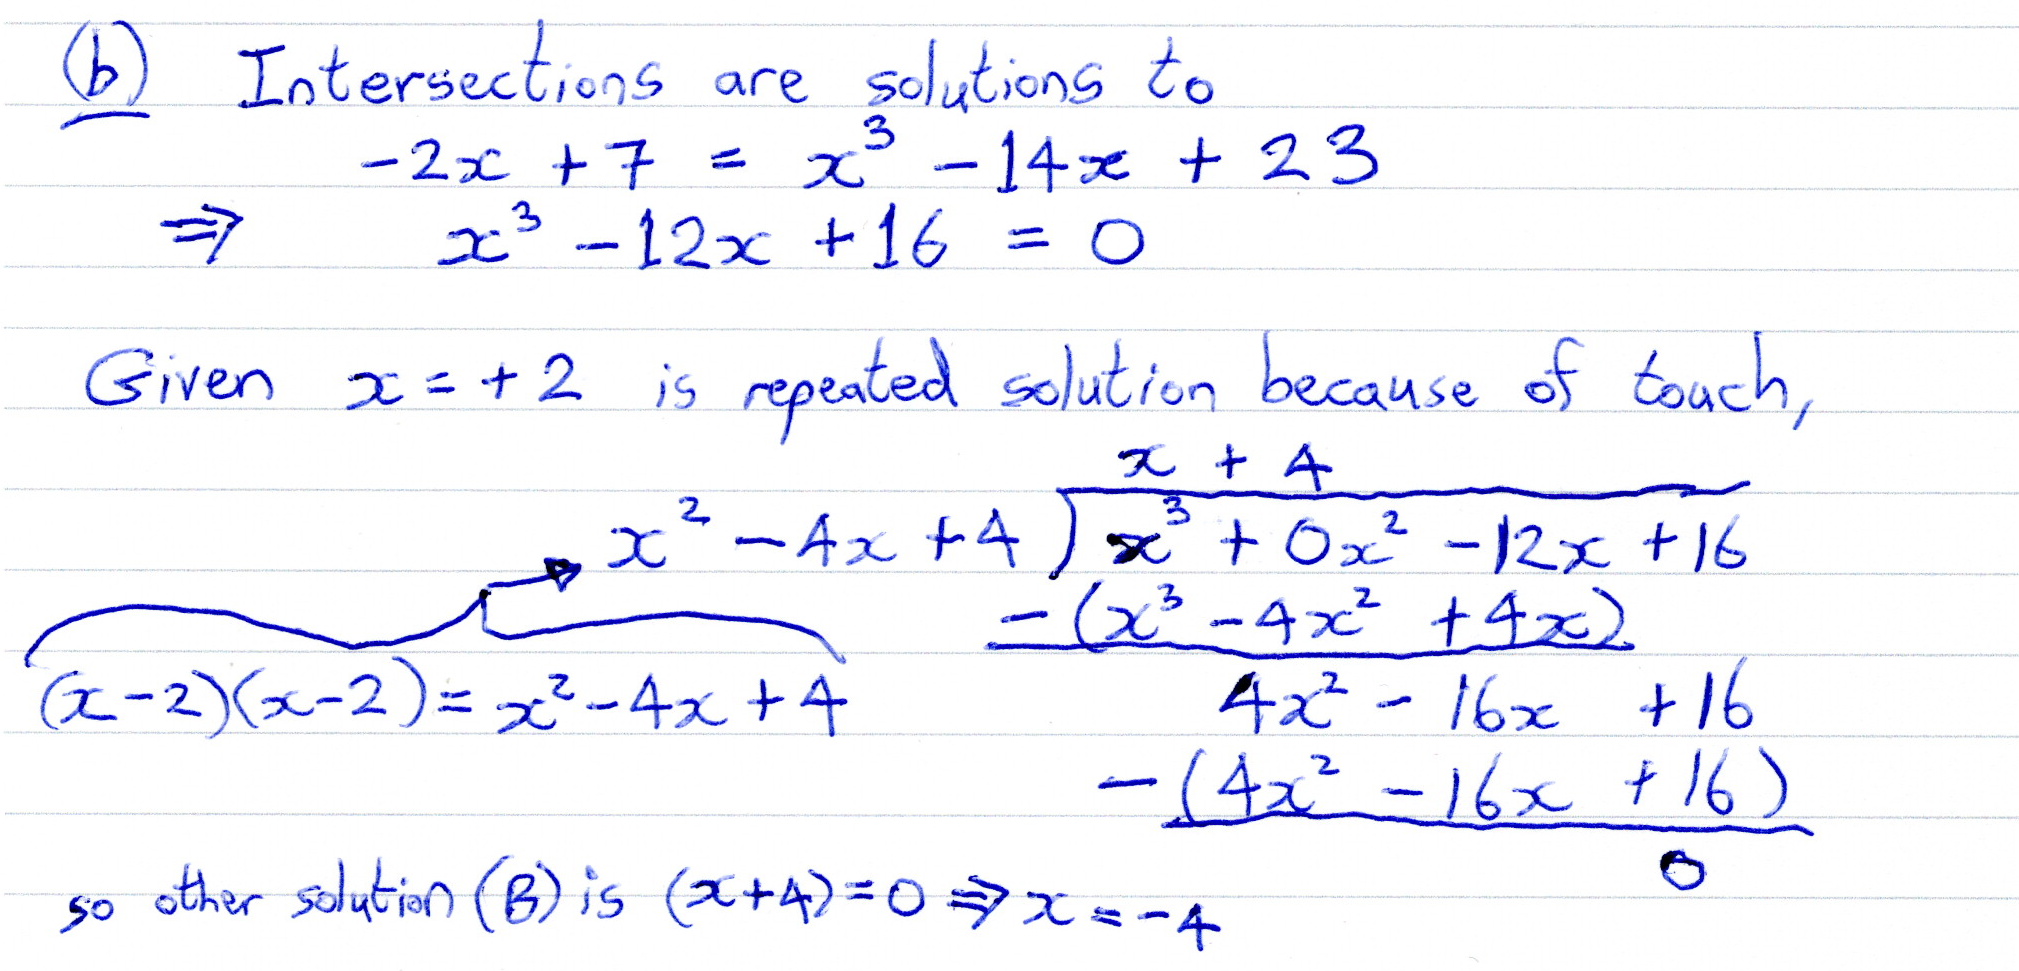 (b) Intersections are solutions to
-2x + 7 = x³ - 14x + 23
⇒ x³ - 12x + 16 = 0
Given x = +2 is repeated solution because of touch,
x + 4
x² - 4x + 4 ) x³ + 0x² - 12x + 16
- (x³ - 4x² + 4x)
(x-2)(x-2) = x² - 4x + 4
4x² - 16x + 16
- (4x² - 16x + 16)
0
so other solution (B) is (x+4) = 0 ⇒ x = -4